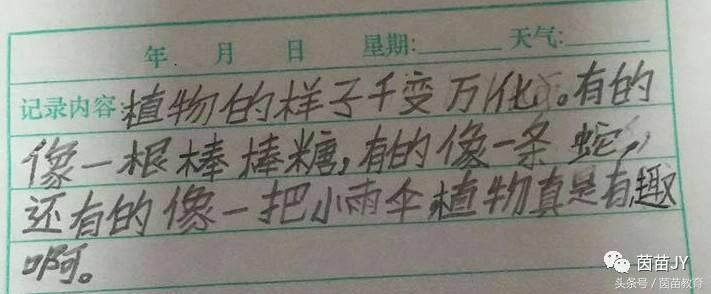 年 月 日 星期: 天气:
记录内容:植物的样子千变万化。有的
像一根棒棒糖,有的像一条蛇,
还有的像一把小雨伞,植物真是有趣
啊。
茵苗JY
头条号/茵苗教育